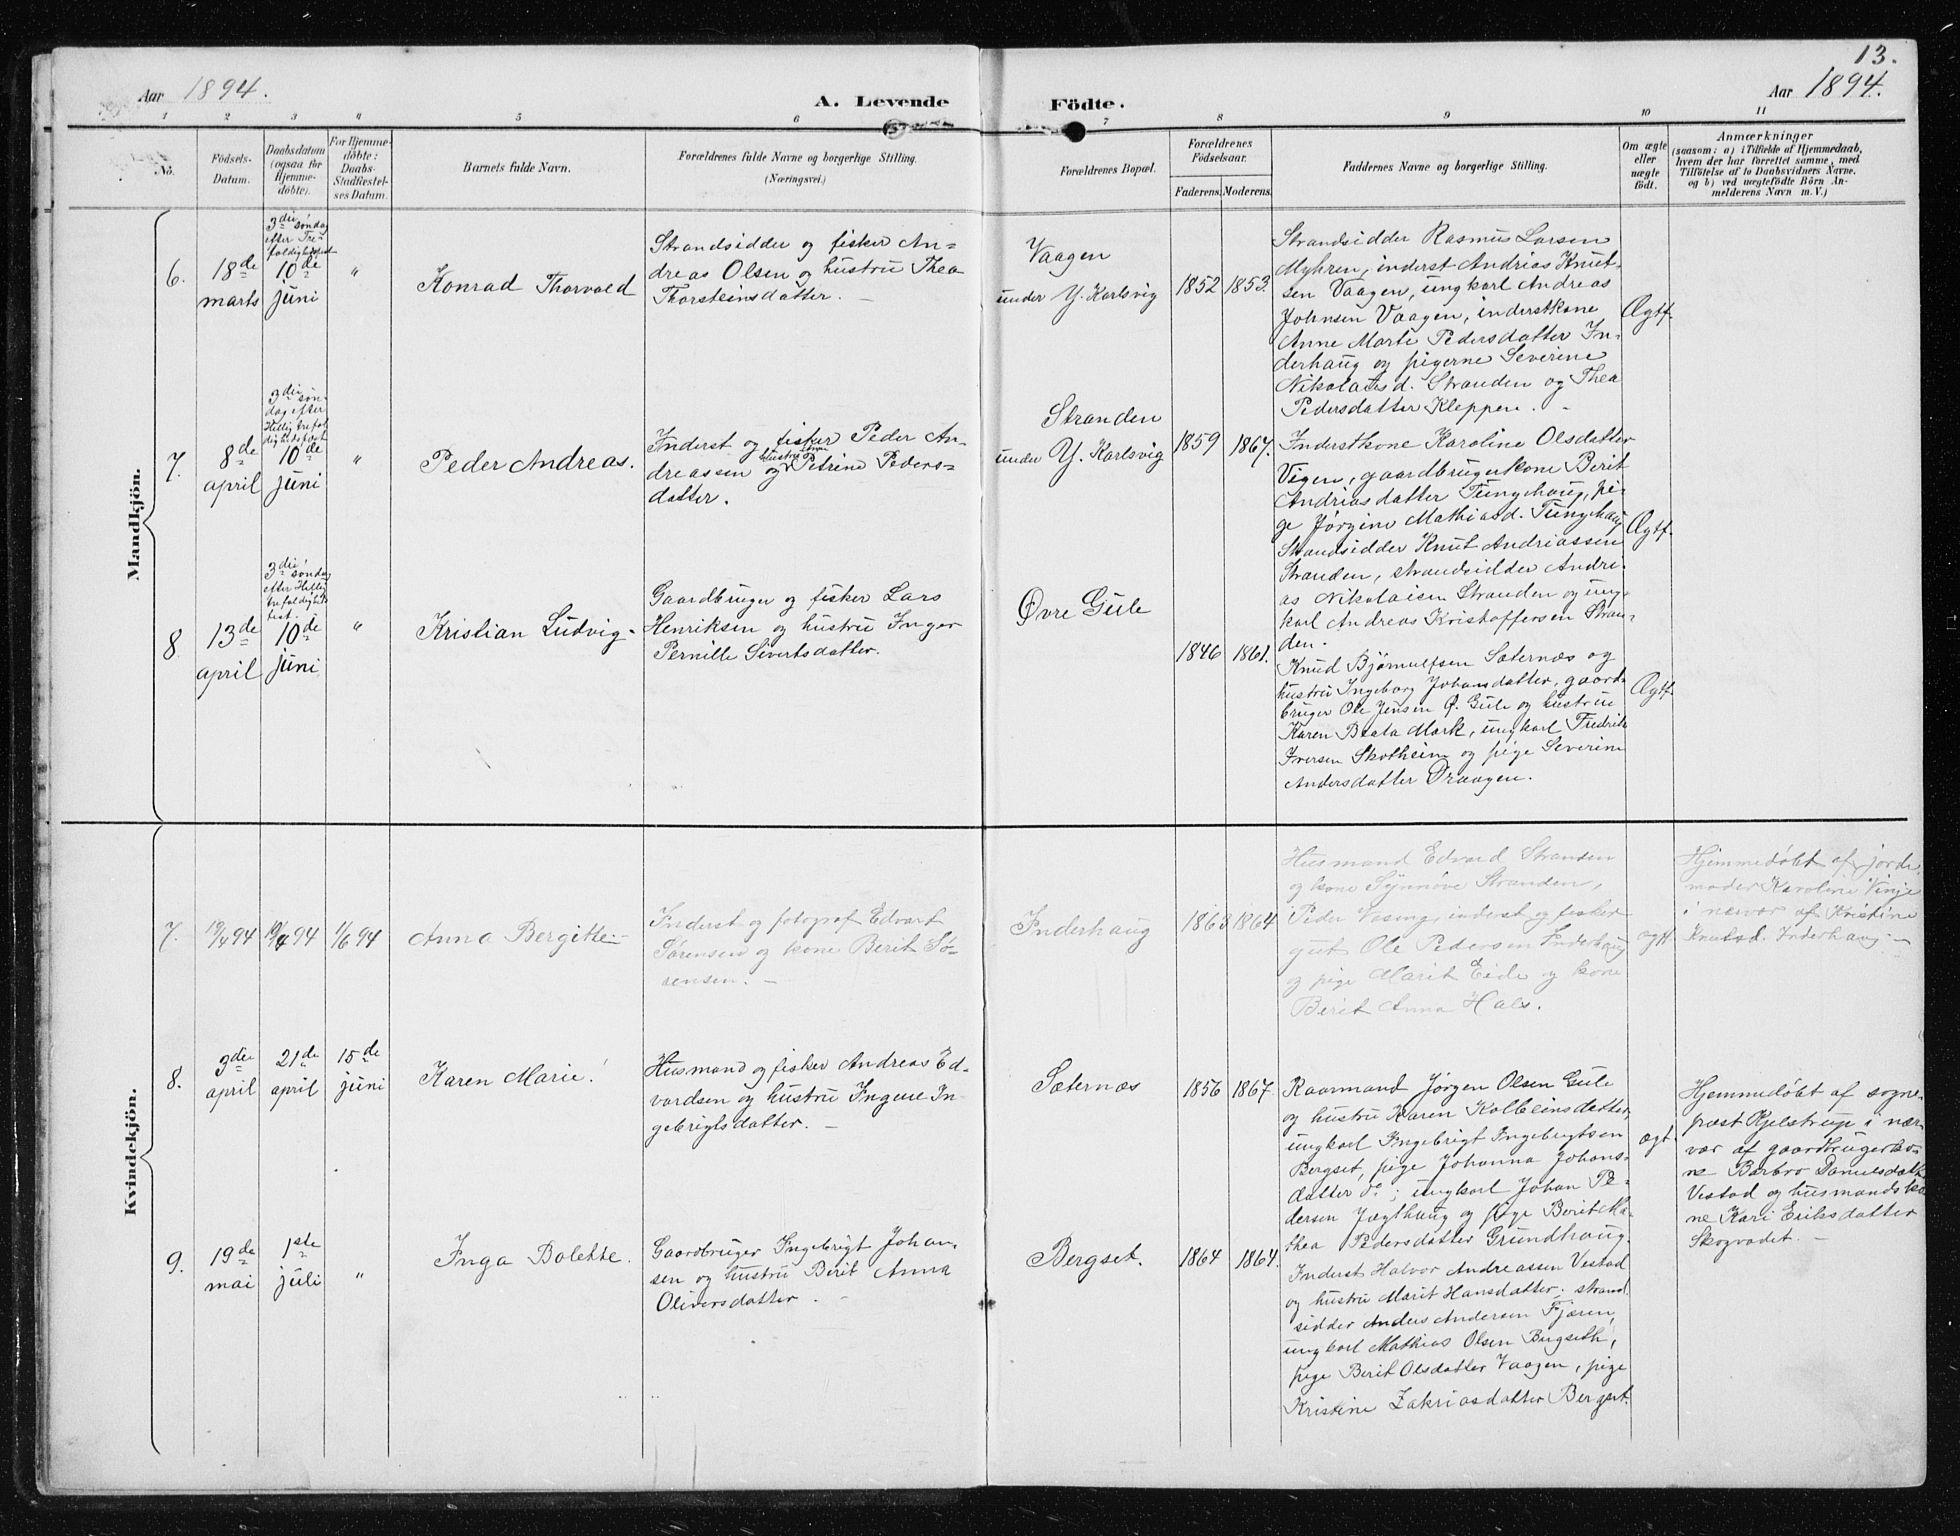 13.
Aar 1894.
A. Levende
Födte.
Aar 1894.
1 2 3 4 5 6 7 8 9 10 11
No.
Födsels-
Datum.
Daabsdatum
(ogsaa for
Hjemme-
döbte).
For Hjemme-
döbte:
Daabs-
Stadfæstel-
ses Datum.
Barnets fulde Navn.
Forældrenes fulde Navne og borgerlige Stilling.
(Næringsvei.)
Forældrenes Bopæl.
Forældrenes
Födselsaar.
Faderens. Moderens.
Faddernes Navne og borgerlige Stilling.
Om ægte
eller
uægte
födt.
Anmærkninger
(saasom: a) i Tilfælde af Hjemmedaab,
hvem der har forrettet samme, med
Tilföielse af to Daabsvidners Navne.
og b) ved uægtefödte Börn An-
melderens Navn m. V.)
Mandkjön.
6.
18de
marts
3die sønda
efter Tre
foldighedsfest
10de
juni
"
Konrad Thorvald
Strandsidder og fisker An-
dreas Olsen og hustru Thea
Thorsteinsdatter. —
Vaagen
under Y. Karlsvig
1852 1853.
Strandsidder Rasmus Larsen
Myhren, inderst Andrias Knut-
sen Vaagen, ungkarl Andreas
Johnsen Vaagen, inderstkone
Anne Marte Pedersdatter In-
derhaug og pigerne Severine
Nikolaisd. Stranden og Thea
Pedersdatter Kleppen. -
Ægtf.
7.
8de
april
3die søn-
dag efter
Hellig trefol
dighedsfest
10de
juni
"
Peder Andreas.
Inderst og fisker Peder An-
dreassen og hustru Petrine Peders-
datter.
Stranden
under Y. Karlsvig
1859 1867.
Inderstkone Karoline Olsdatter
Vigen, gaardbrugerkone Berit
Andriasdatter Tunghaug, pi-
ge Jørgine Mathiasd. Tunghaug
Strandsidder Knut Andriassen
Stranden, strandsidder Andre-
as Nikolaisen Stranden og ung-
karl Andreas Kristoffersen Stran-
den.
Ægtf.
8
13de
april
3die sønda
efter Hellig
trefoldigheds
fest.
10de
juni
"
Kristian Ludvig -
Gaardbruger og fisker Lars
Henriksen og hustru Inger
Pernille Sivertsdatter.
Øvre Gule
1846 1861.
Knud Bjørnulfsen Sæternæs og
hustru Ingeborg Johansdatter, gaard-
bruger Ole Jensen Ø. Gule og hustru
Karen Beata Mork, ungkarl Fredrik
Iversen Skotheim og pige Severine
Andersdatter Draagen.
Ægtf.
Kvindekjön.
7.
19/4 94 1/6 94
Anna Bergitte -
Inderst og fotograf Edvart
Sørensen og kone Berit Sø-
rensen. -
Inderhaug
1863 1864
Husmand Edvard Stranden
og kone Synnøve Stranden,
Peder Vasing, inderst og fisker
gut Ole Pedersen Inderhaug
og pige Marit Eide og kone
Berit Anna Hals.
ægtf
Hjemmedøbt af jorde
moder Karoline Vinje
i nærvær af Kristine
Knutsd. Inderhaug. —
8.
3die
april
21de
april
15de
juni
Karen Marie!
Husmand og fisker Andreas Ed-
vardsen og hustru Ingeue In-
gebrigtsdatter. —
Sæternæs
1856 1867.
Kaarmand Jørgen Olsen Gule
og hustru Karen Kolbeinsdatter,
ungkarl Ingebrigt Ingebrigtsen
Bergset, pige Johanna Johans-
datter do; ungkarl Johan Pe-
dersen Jægthaug og pige Berit Ma-
thea Pedersdatter Grundhaug.
ægt.
Hjemmedøbt af sogne-
præst Kjelstrup i nær-
vær af gaardbrugerko-
ne Barbro Danielsdatt
Vestad og husmandsko
ne Kari Eriksdatter
Skogvadet. —
9.
19de
mai
1ste
juli
"
Inga Bolette.
Gaardbruger Ingebrigt Johan-
sen og hustru Berit Anna
Oliversdatter. -
Bergset.
1864 1864.
Inderst Halvor Andreassen Vestad
og hustru Marit Hansdatter, strand
sidder Anders Andersen Fjæren,
ungkarl Mathias Olsen Bugseth,
pige Berit Olsdatter Vaagen, pige
Kristine Zakriasdatter Bergset.